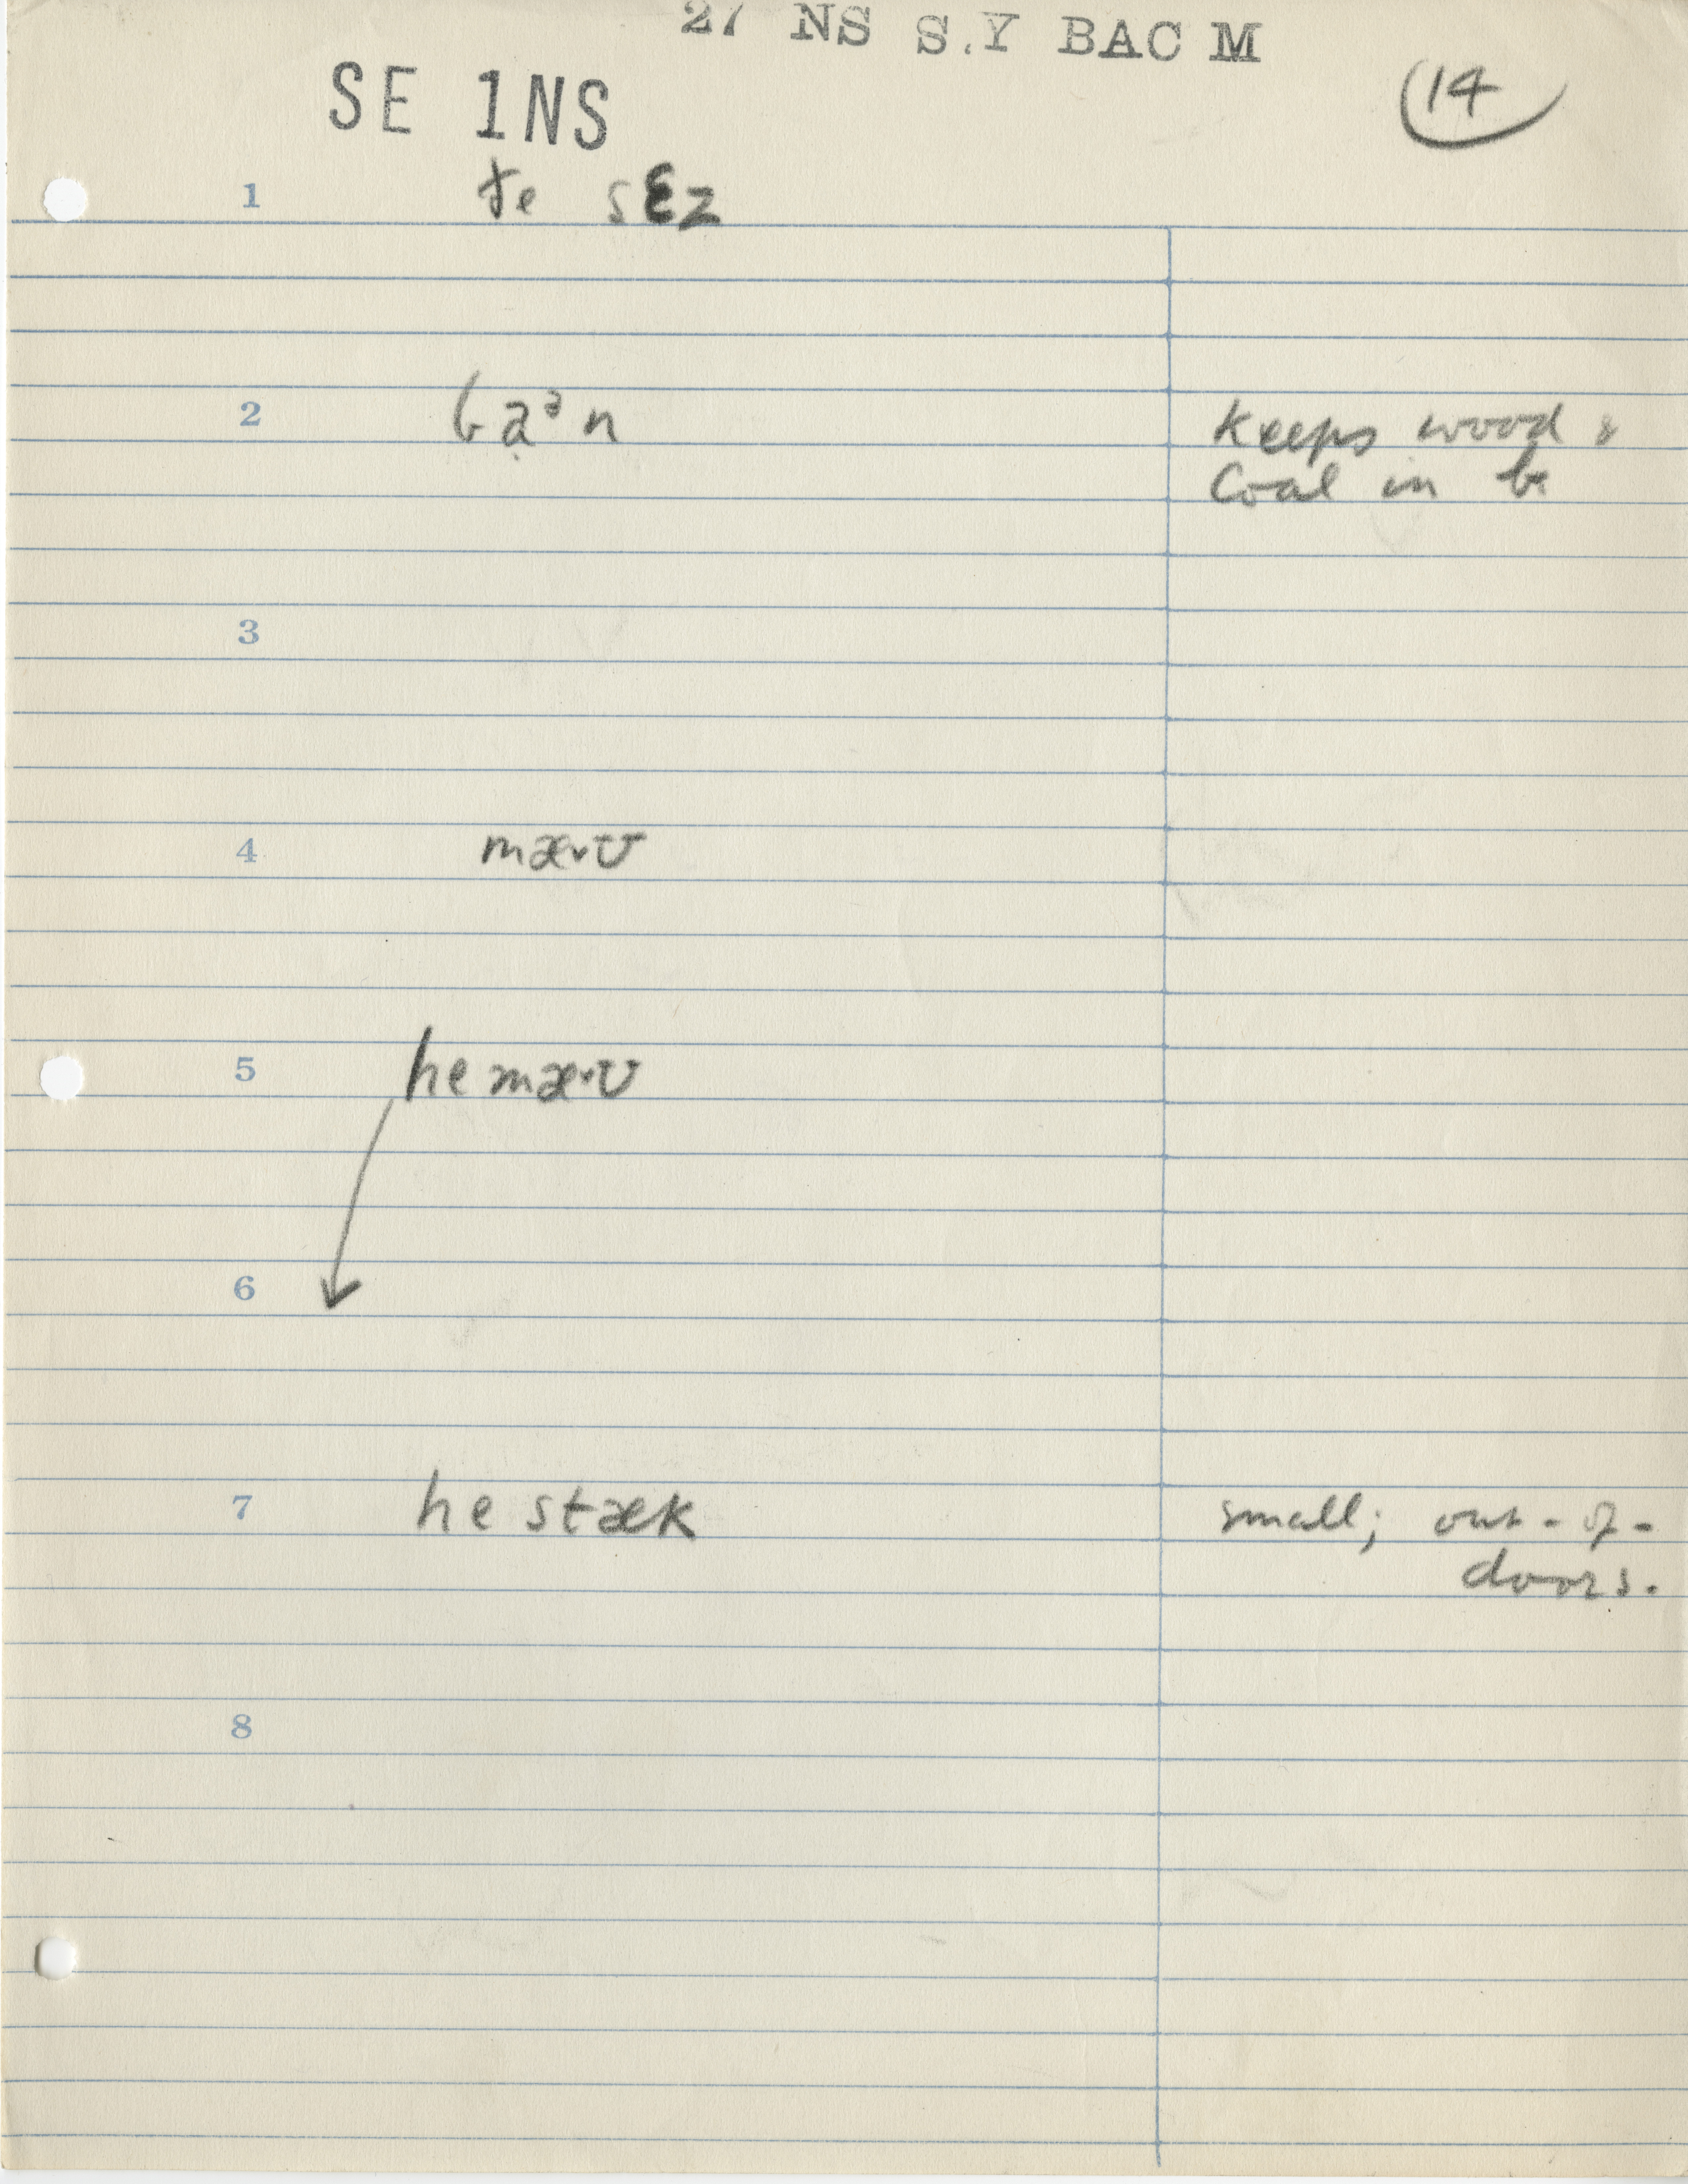 27 NS S.Y BAC M
SE 1NS
14
1 te sɛz
2 baᵊn keeps wood &
coal in b.
3
4 mæ˞ʊ
5 he mæ˞ʊ
6
7 he stæk small; out-of-
doors.
8